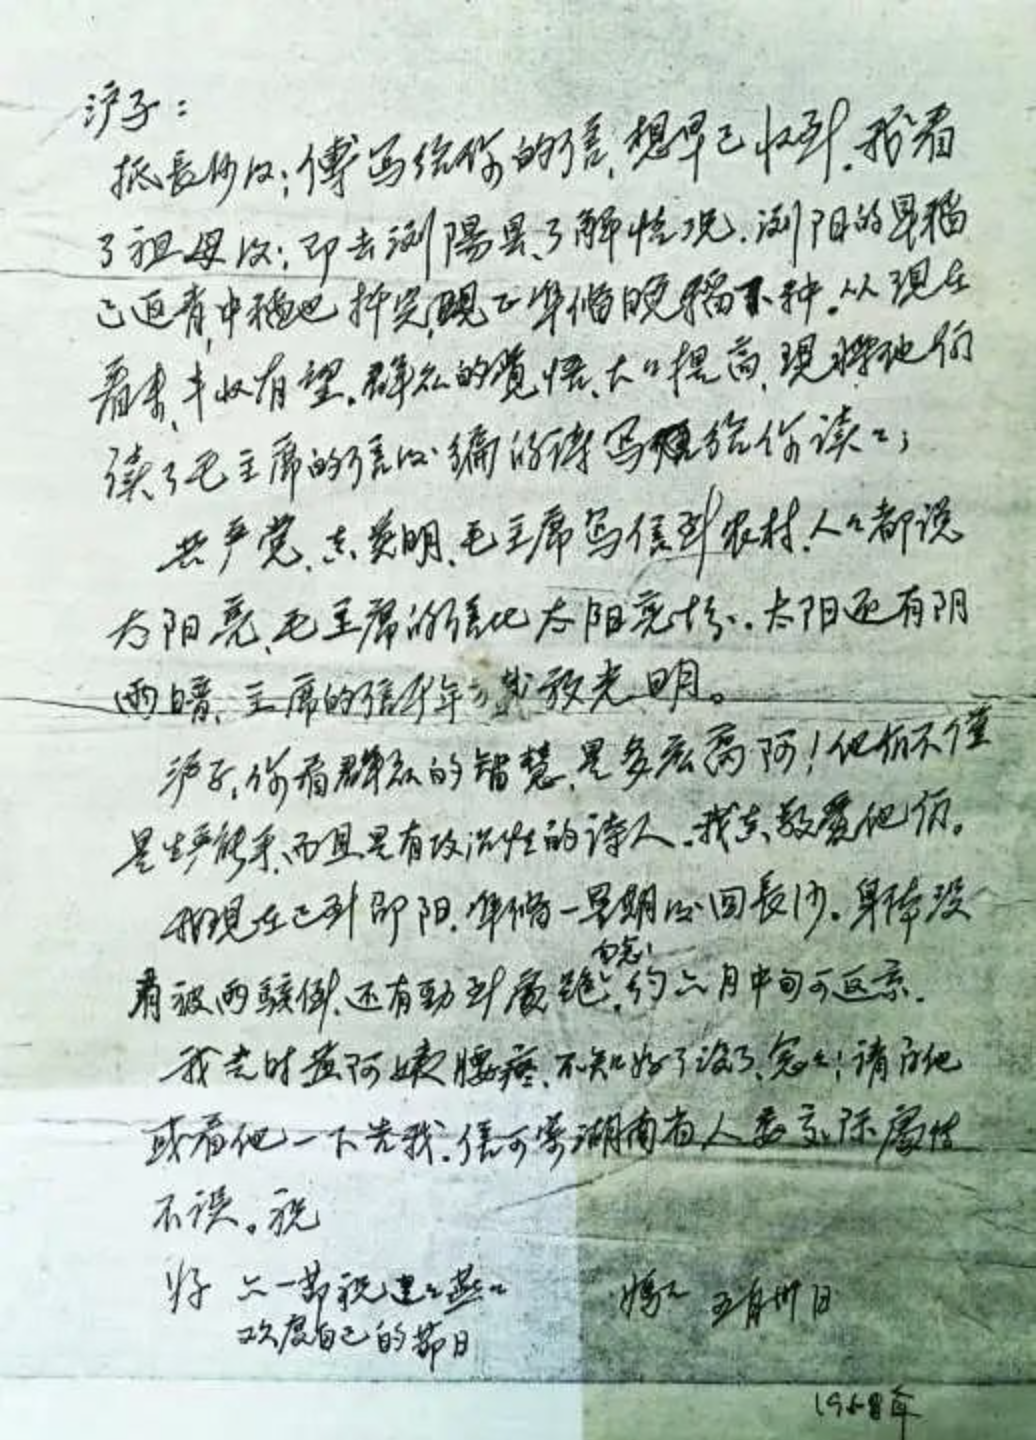 沪子：
抵長沙后；傅写给你的信，想早已收到。我看
了祖母后；即去浏陽县、了解情况。浏阳的早稻
已返青，中稻也插完，現正準备晚稻下种。从現在
看来、丰收有望。群众的覺悟、大々提高，現將他们
读了毛主席的信后编的诗写给你读々；
共产党、真英明、毛主席写信到农村、人々都说
太阳亮、毛主席的信比太阳亮十分。太阳还有阴
雨暗、主席的信千年万载放光明。
沪子，你看群众的智慧，是多么高阿！他们不僅
是生产能手、而且是有政治性的诗人。我真敬爱他们。
我現在已到邵阳，準备一星期后回長沙。身体没
有被雨颏倒，还有劲到處跑，勿念！约六月中旬可返京。
我走时 阿姨腰疼、不知好了没了，念々！請问他
或看他一下告我。信可寄湖南省人委交际處
不误。祝
好 六一节祝建々燕々
欢度自己的节日
媽々 五月卅日
196 年